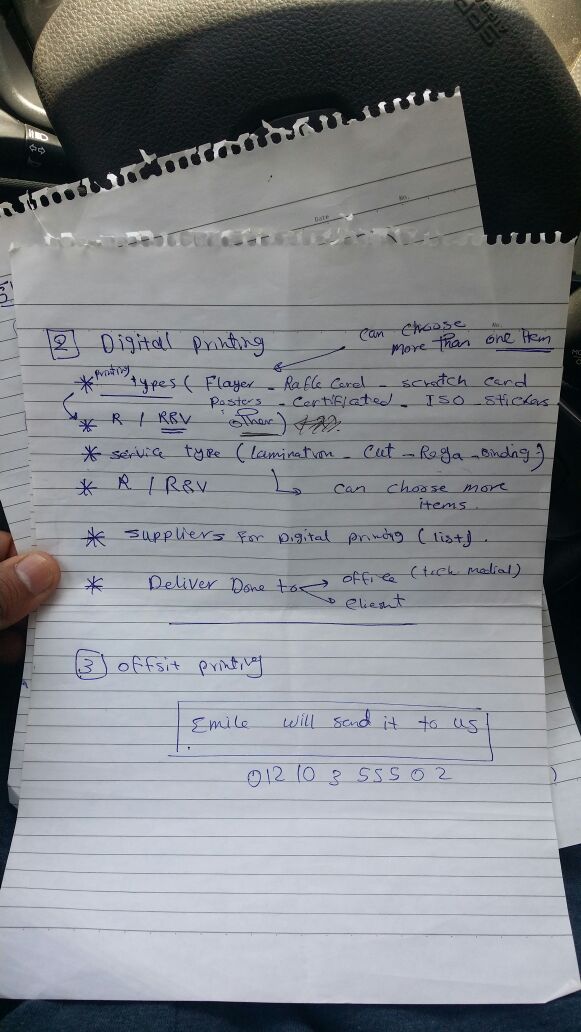 Date
No.
No.
2 Digital printing
can choose
more than one item
* printing types ( Flayer - Rafle Card - scratch card
Posters - Certifiated - ISO - Stickers
* R / RBV other )
* service type ( lamination - Cut - Rega - Binding )
* R / RBV
can choose more
items.
* suppliers for Digital printing ( list ).
* Deliver Done to office ( tech medial )
client
3 offsit printing
Emile will send it to us
012 10 3 555 02